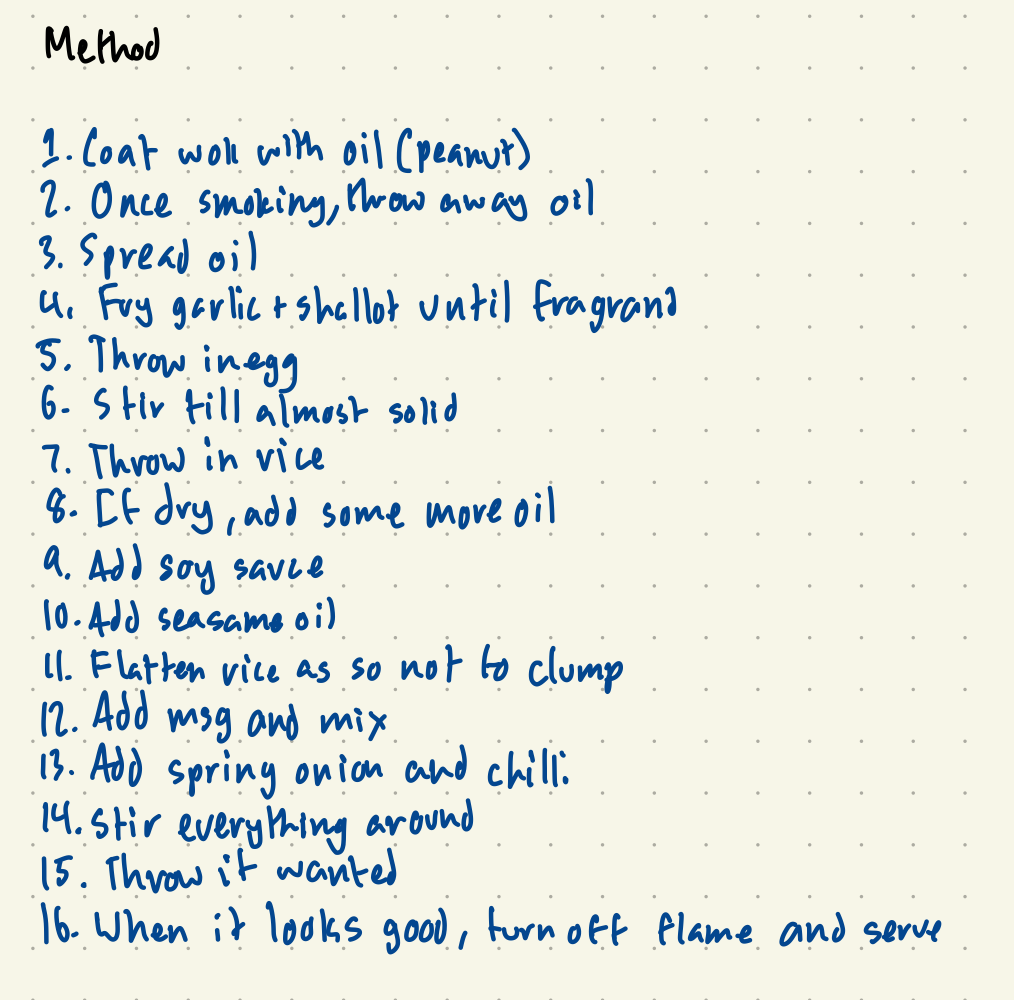 Method
1. Coat wok with oil (peanut)
2. Once smoking, throw away oil
3. Spread oil
4. Fry garlic + shallot until fragrand
5. Throw in egg
6. Stir till almost solid
7. Throw in rice
8. If dry, add some more oil
9. Add soy sauce
10. Add seasame oil
11. Flatten rice as so not to clump
12. Add msg and mix
13. Add spring onion and chilli
14. Stir everything around
15. Throw if wanted
16. When it looks good, turn off flame and serve